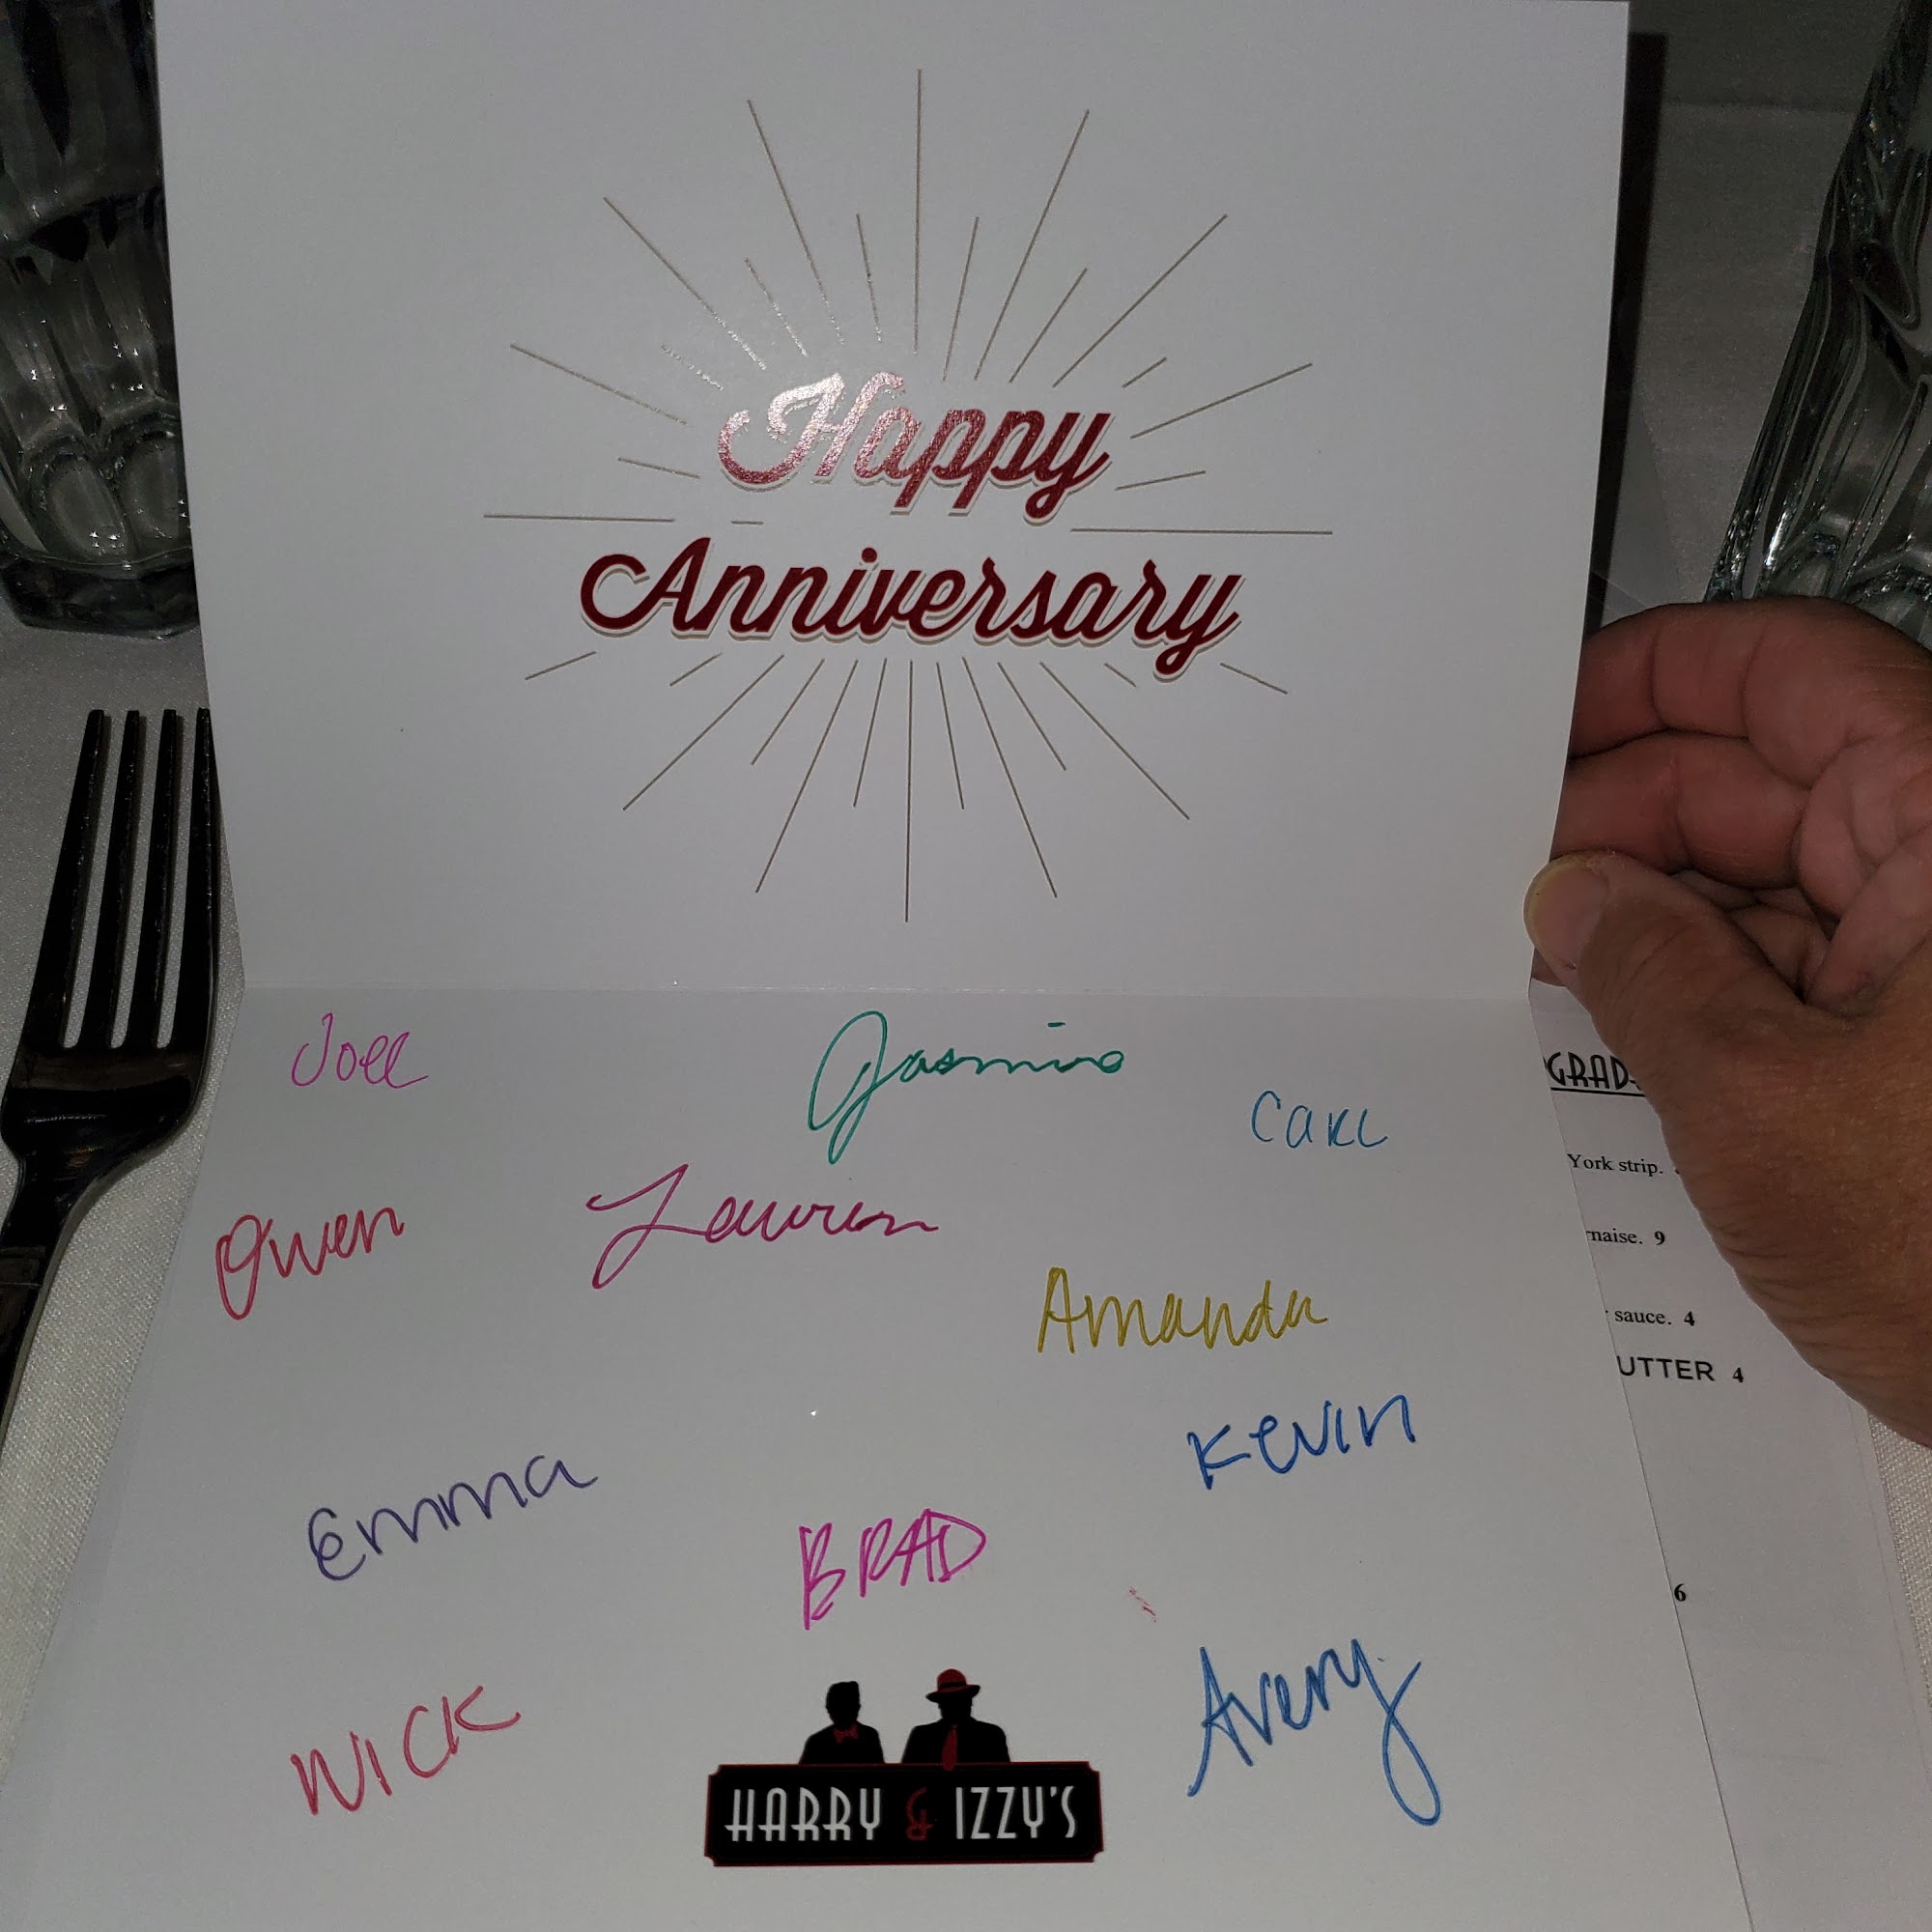 Happy
Anniversary
Joel
Jasmine
Carl
Owen
Lauren
Amanda
Kevin
Emma
BRAD
Avery
NICK
HARRY & IZZY'S
York strip.
sauce. 4
9
4
6